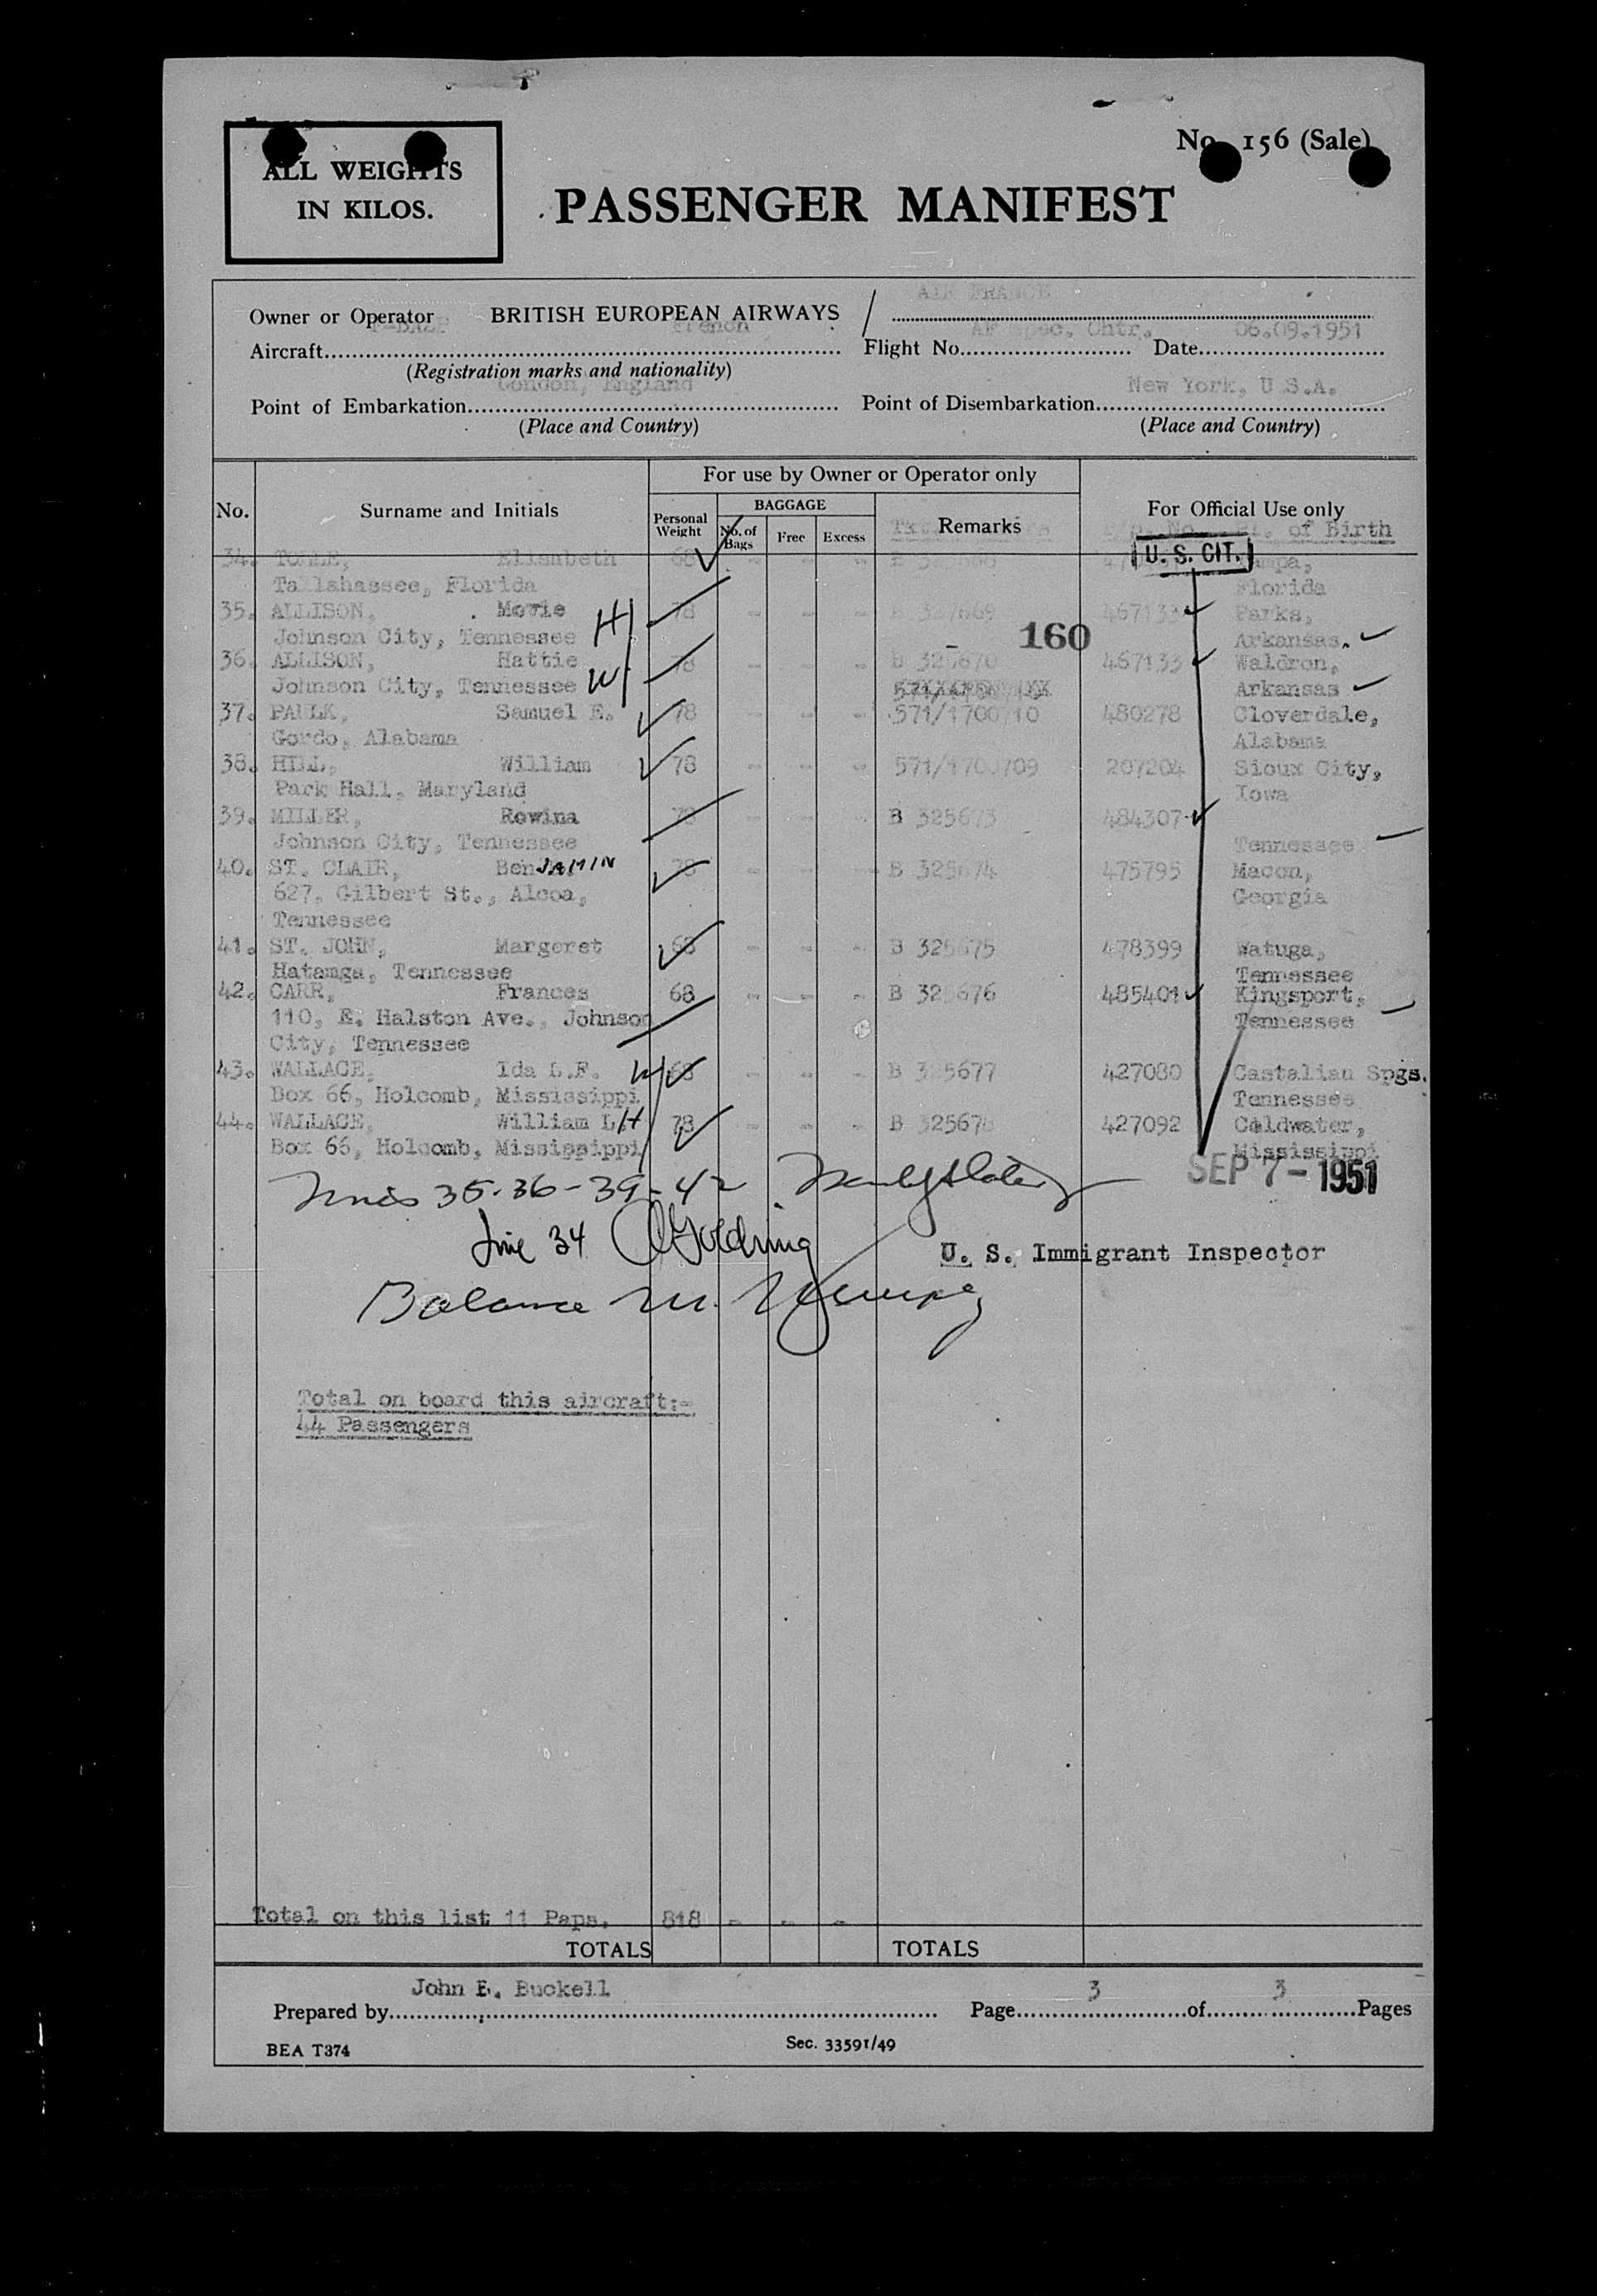 No. 156 (Sale)
ALL WEIGHTS
IN KILOS.
PASSENGER MANIFEST
AIR FRANCE
Owner or Operator BRITISH EUROPEAN AIRWAYS /
French AF Spec. Chtr. 06.09.1951
Aircraft Flight No. Date
(Registration marks and nationality)
London, England New York, U.S.A.
Point of Embarkation Point of Disembarkation
(Place and Country) (Place and Country)
For use by Owner or Operator only
No. Surname and Initials Personal Weight BAGGAGE No. of Bags Free Excess Remarks For Official Use only
of Birth
U. S. CIT.
34. Elisabeth 68 - - -
Tallahassee, Florida Florida
35. ALLISON, Movie H 78 - - - 467133 Parks,
Johnson City, Tennessee 160 Arkansas.
36. ALLISON, Hattie W 78 - - - B 325670 467133 Waldron,
Johnson City, Tennessee Arkansas
37. PAULK, Samuel E. 78 - - - 571/1700710 480278 Cloverdale,
Gordo, Alabama Alabama
38. HILL, William 78 - - - 571/1700709 207204 Sioux City,
Park Hall, Maryland Iowa
39. MILLER, Rowina 78 - - - B 325673 484307
Johnson City, Tennessee Tennessee
40. ST. CLAIR, BenJAMIN 78 - - - B 325674 475795 Macon,
627, Gilbert St., Alcoa, Georgia
Tennessee
41. ST. JOHN, Margeret 68 - - - B 325675 478399 Watuga,
Hatamga, Tennessee Tennessee
42. CARR, Frances 68 - - - B 325676 485401 Kingsport,
110, E. Halston Ave., Johnson Tennessee
City, Tennessee
43. WALLACE, Ida L.F. W 68 - - - B 325677 427080 Castalian Spgs.
Box 66, Holcomb, Mississippi Tennessee
44. WALLACE, William L. H 78 - - - B 427092 Coldwater,
Box 66, Holcomb, Mississippi Mississippi
SEP 7 - 1951
Lines 35-36-39-42
Line 34 Golding
U. S. Immigrant Inspector
Balance M.
Total on board this aircraft:-
44 Passengers
Total on this list 11 Paps. 818 - - -
TOTALS TOTALS
John E. Buckell 3 3
Prepared by Page of Pages
BEA T374 Sec. 33591/49